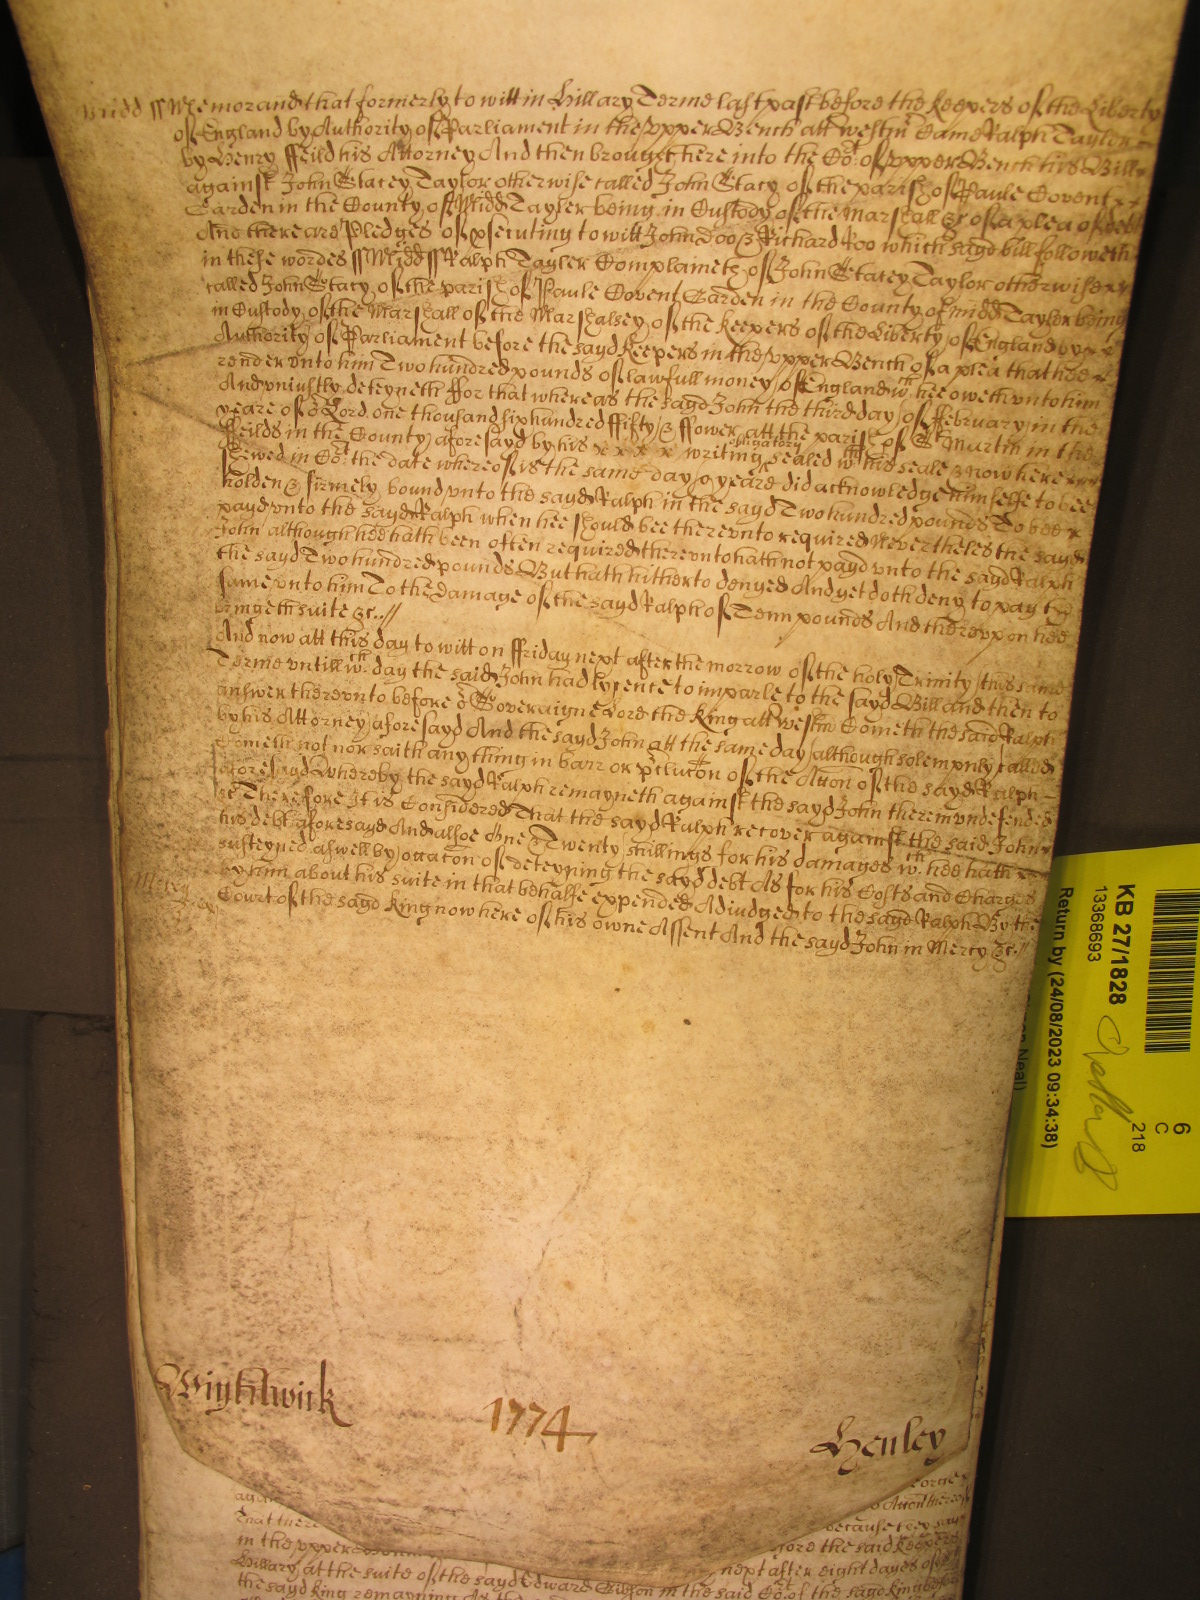 Midd ss Memorand that formerly to witt in Hillary Terme last past before the Keepers of the Liberty
of England by Authority of Parliament in the vpper Bench att Westm Came Ralph Taylor
by Henry ffeild his Attorney And then brought here into the Cot of vpper Bench his Bill
against John Stacey Taylor otherwise called John Stacy of the parish of Paule Covent
Garden in the County of Midd Tayler being in Custody of the Marshall &c of a plea of debt
And there are Pledges of p'secuting to witt John Doo & Richard Roo which sayd bill followeth
in these wordes ss Midd ss Ralph Tayler Complaineth of John Stacey Taylor otherwise
called John Stacy of the parish of Paule Covent Garden in the County of Midd Tayler being
in Custody of the Marshall of the Marshalsey of the Keepers of the Liberty of England by
Authority of Parliament before the sayd Keepers in the vpper Bench of a plea that hee
render vnto him Two hundred pounds of lawfull money of England wch hee oweth vnto him
And vniustly deteyneth ffor that whereas the sayd John the third day of ffebruary in the
yeare of or Lord one thousand six hundred ffifty & ffower att the parish of St Martin in the
ffeilds in the County aforesayd by his x x x x writing obligatory sealed wth his seale & now here
shewed in Cot the date whereof is the same day & yeare did acknowledge himselfe to bee
holden & firmely bound vnto the sayd Ralph in the sayd Two hundred pounds To bee
payd vnto the sayd Ralph when hee should bee therevnto required Nevertheles the sayd
John although hee hath been often required therevnto hath not payd vnto the sayd Ralph
the sayd Two hundred pounds But hath hitherto denyed And yet doth deny to pay the
same vnto him To the damage of the sayd Ralph of Tenn pounds And therevpon hee
bringeth suite &c.//
And now att this day to witt on ffriday next after the morrow of the holy Trinity this same
Terme vntill wch day the said John had lycence to imparle to the sayd Bill and then to
answer therevnto before or Soveraigne Lord the King att Westm Cometh the said Ralph
by his Attorney aforesayd And the sayd John att the same day although solempnly called
Cometh not nor saith any thing in barr or p'clucon of the Accon of the sayd Ralph
aforesayd Whereby the sayd Ralph remayneth against the sayd John therein vndefended
&c Therefore It is Considered That the sayd Ralph recover against the said John
his debt aforesayd And alsoe One & Twenty shillings for his damages wch hee hath
susteyned aswell by occacon of deteyning the sayd debt As for his Costs and Charges
Mercy by him about his suite in that behalfe expended Adiudged to the sayd Ralph By the
Court of the sayd King now here of his owne Assent And the sayd John in Mercy &c.//
Wightwick
1774
Henley
because they say
in the vpper
fore the said Keepers
Hillary att the suite of the sayd Edward Gibson in the said Cot of the sayd King before
next after eight dayes of
the sayd King remayning
KB 27/1828
13368693
Return by (24/08/2023 09:34:38)
Neal)
6
C
218